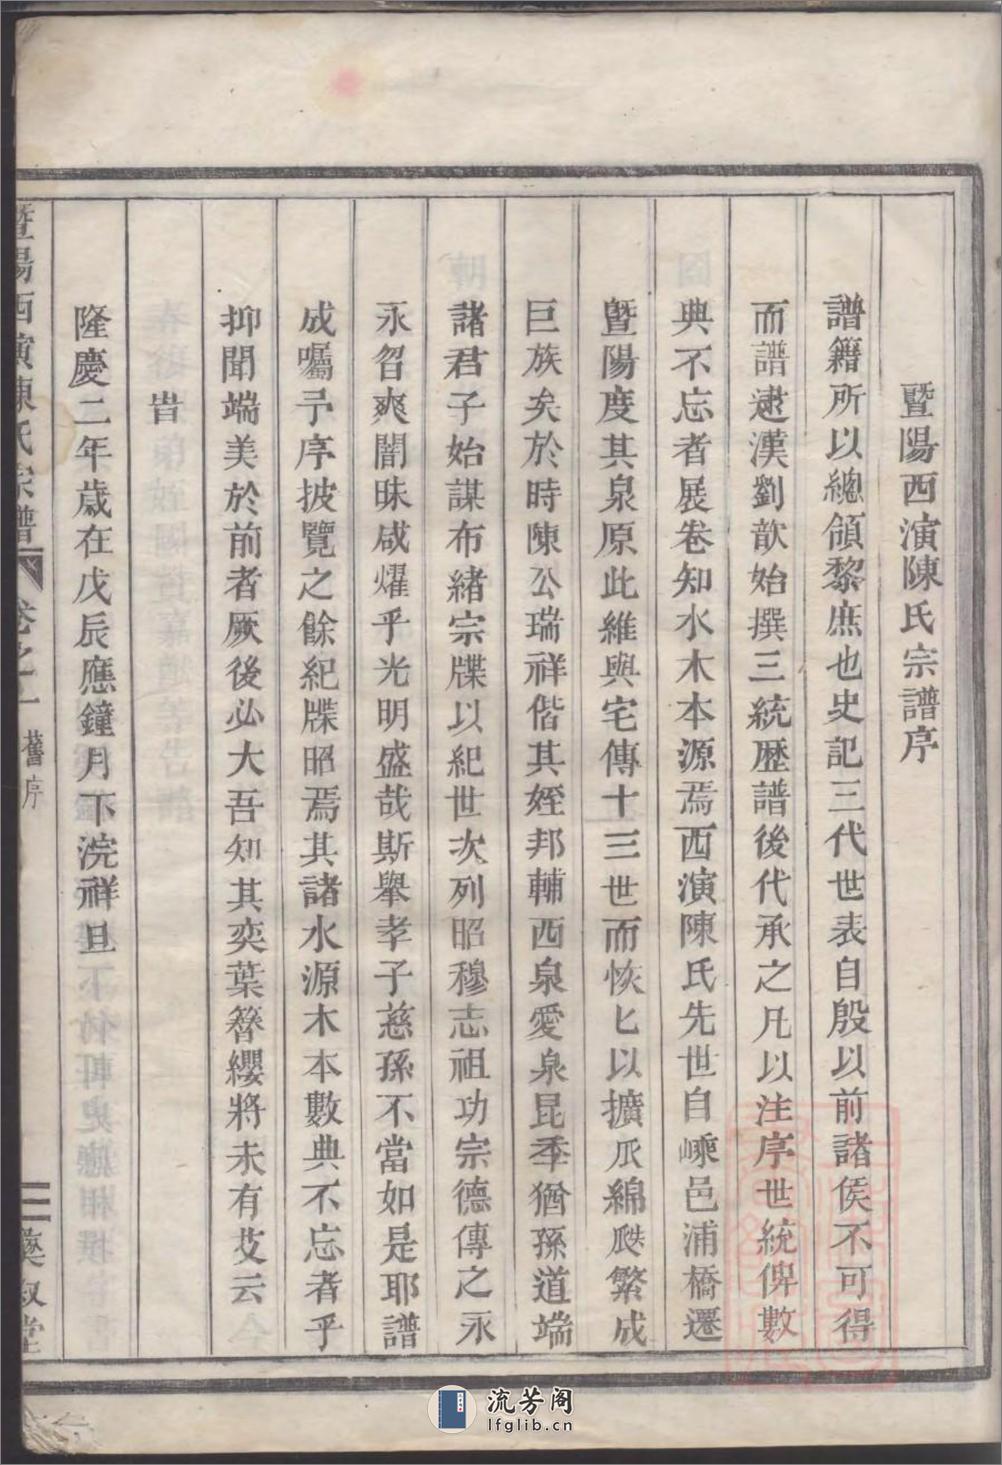 暨陽西演陳氏宗譜序
譜籍所以總領黎庶也史記三代世表自殷以前諸侯不可得
而譜逮漢劉歆始撰三統歷譜後代承之凡以注序世統俾數
典不忘者展卷知水木本源焉西演陳氏先世自嵊邑浦橋遷
暨陽度其泉原此維與宅傳十三世而恢匕以擴瓜綿瓞繁成
巨族矣於時陳公瑞祥偕其姪邦輔西泉愛泉昆季猶孫道端
諸君子始謀布緒宗牒以紀世次列昭穆志祖功宗德傳之永
永曶爽闇昧咸燿乎光明盛哉斯舉孝子慈孫不當如是耶譜
成囑予序披覽之餘紀牒昭焉其諸水源木本數典不忘者乎
抑聞端美於前者厥後必大吾知其奕葉簪纓將未有艾云
旹
隆慶二年歲在戊辰應鐘月下浣祥旦
暨陽西演陳氏宗譜 卷之一 舊序 二
流芳阁
lfglib.cn